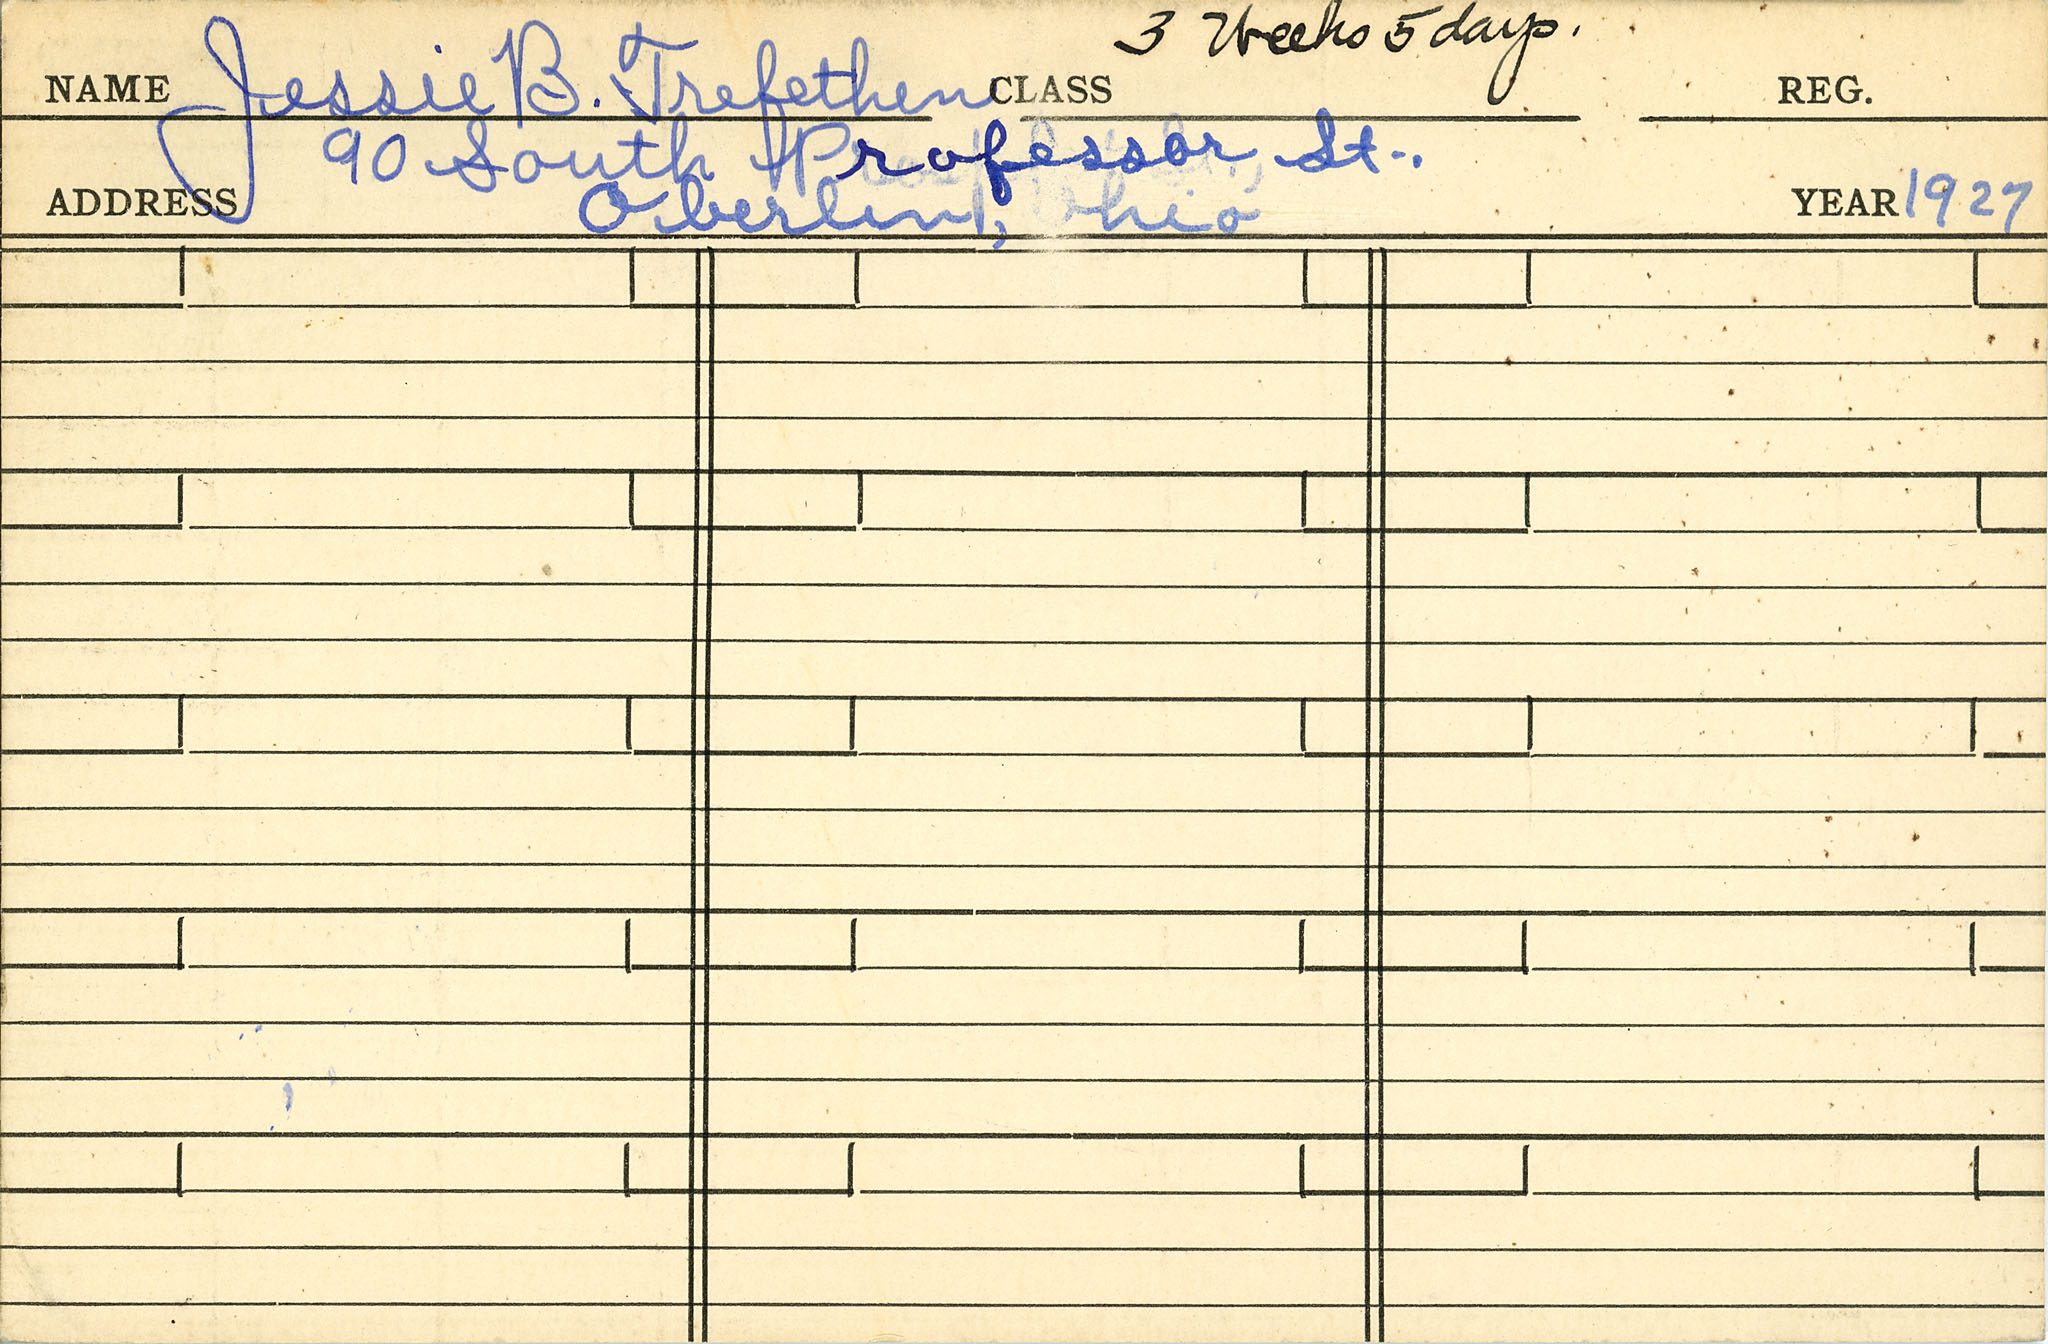 3 Weeks 5 days.
NAME Jessie B. Trefethen CLASS REG.
90 South Professor St.
ADDRESS Oberlin, Ohio YEAR 1927